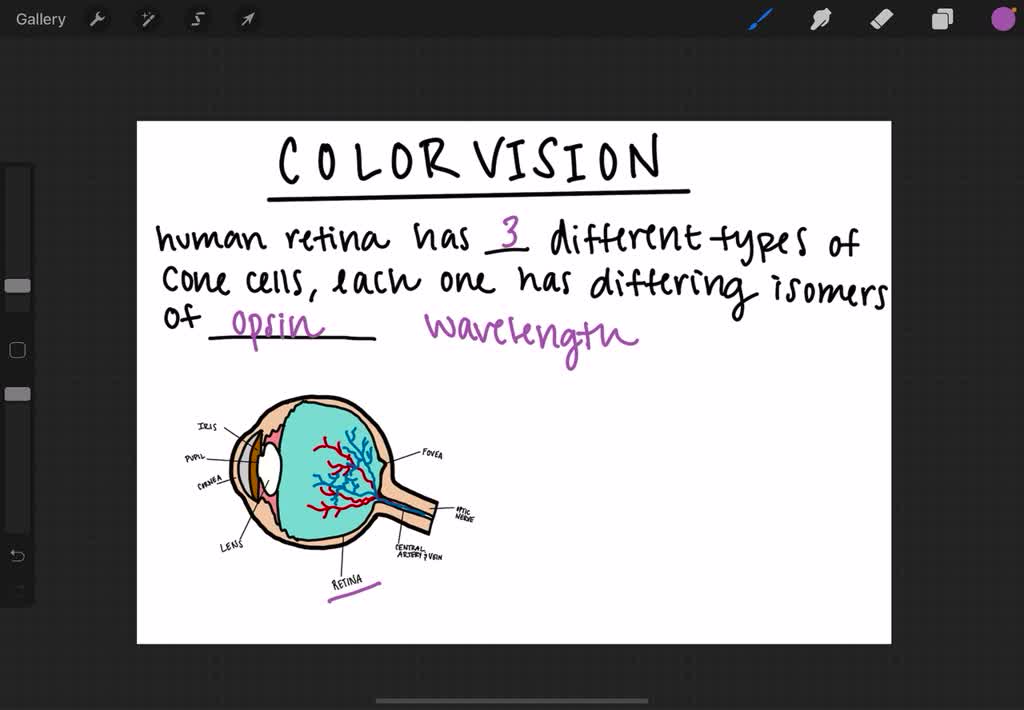 Gallery
COLOR VISION
human retina has 3 different types of
cone cells, each one has differing isomers
of opsin wavelength
IRIS
PUPIL
CORNEA
LENS
FOVEA
OPTIC
NERVE
CENTRAL
ARTERY & VEIN
RETINA